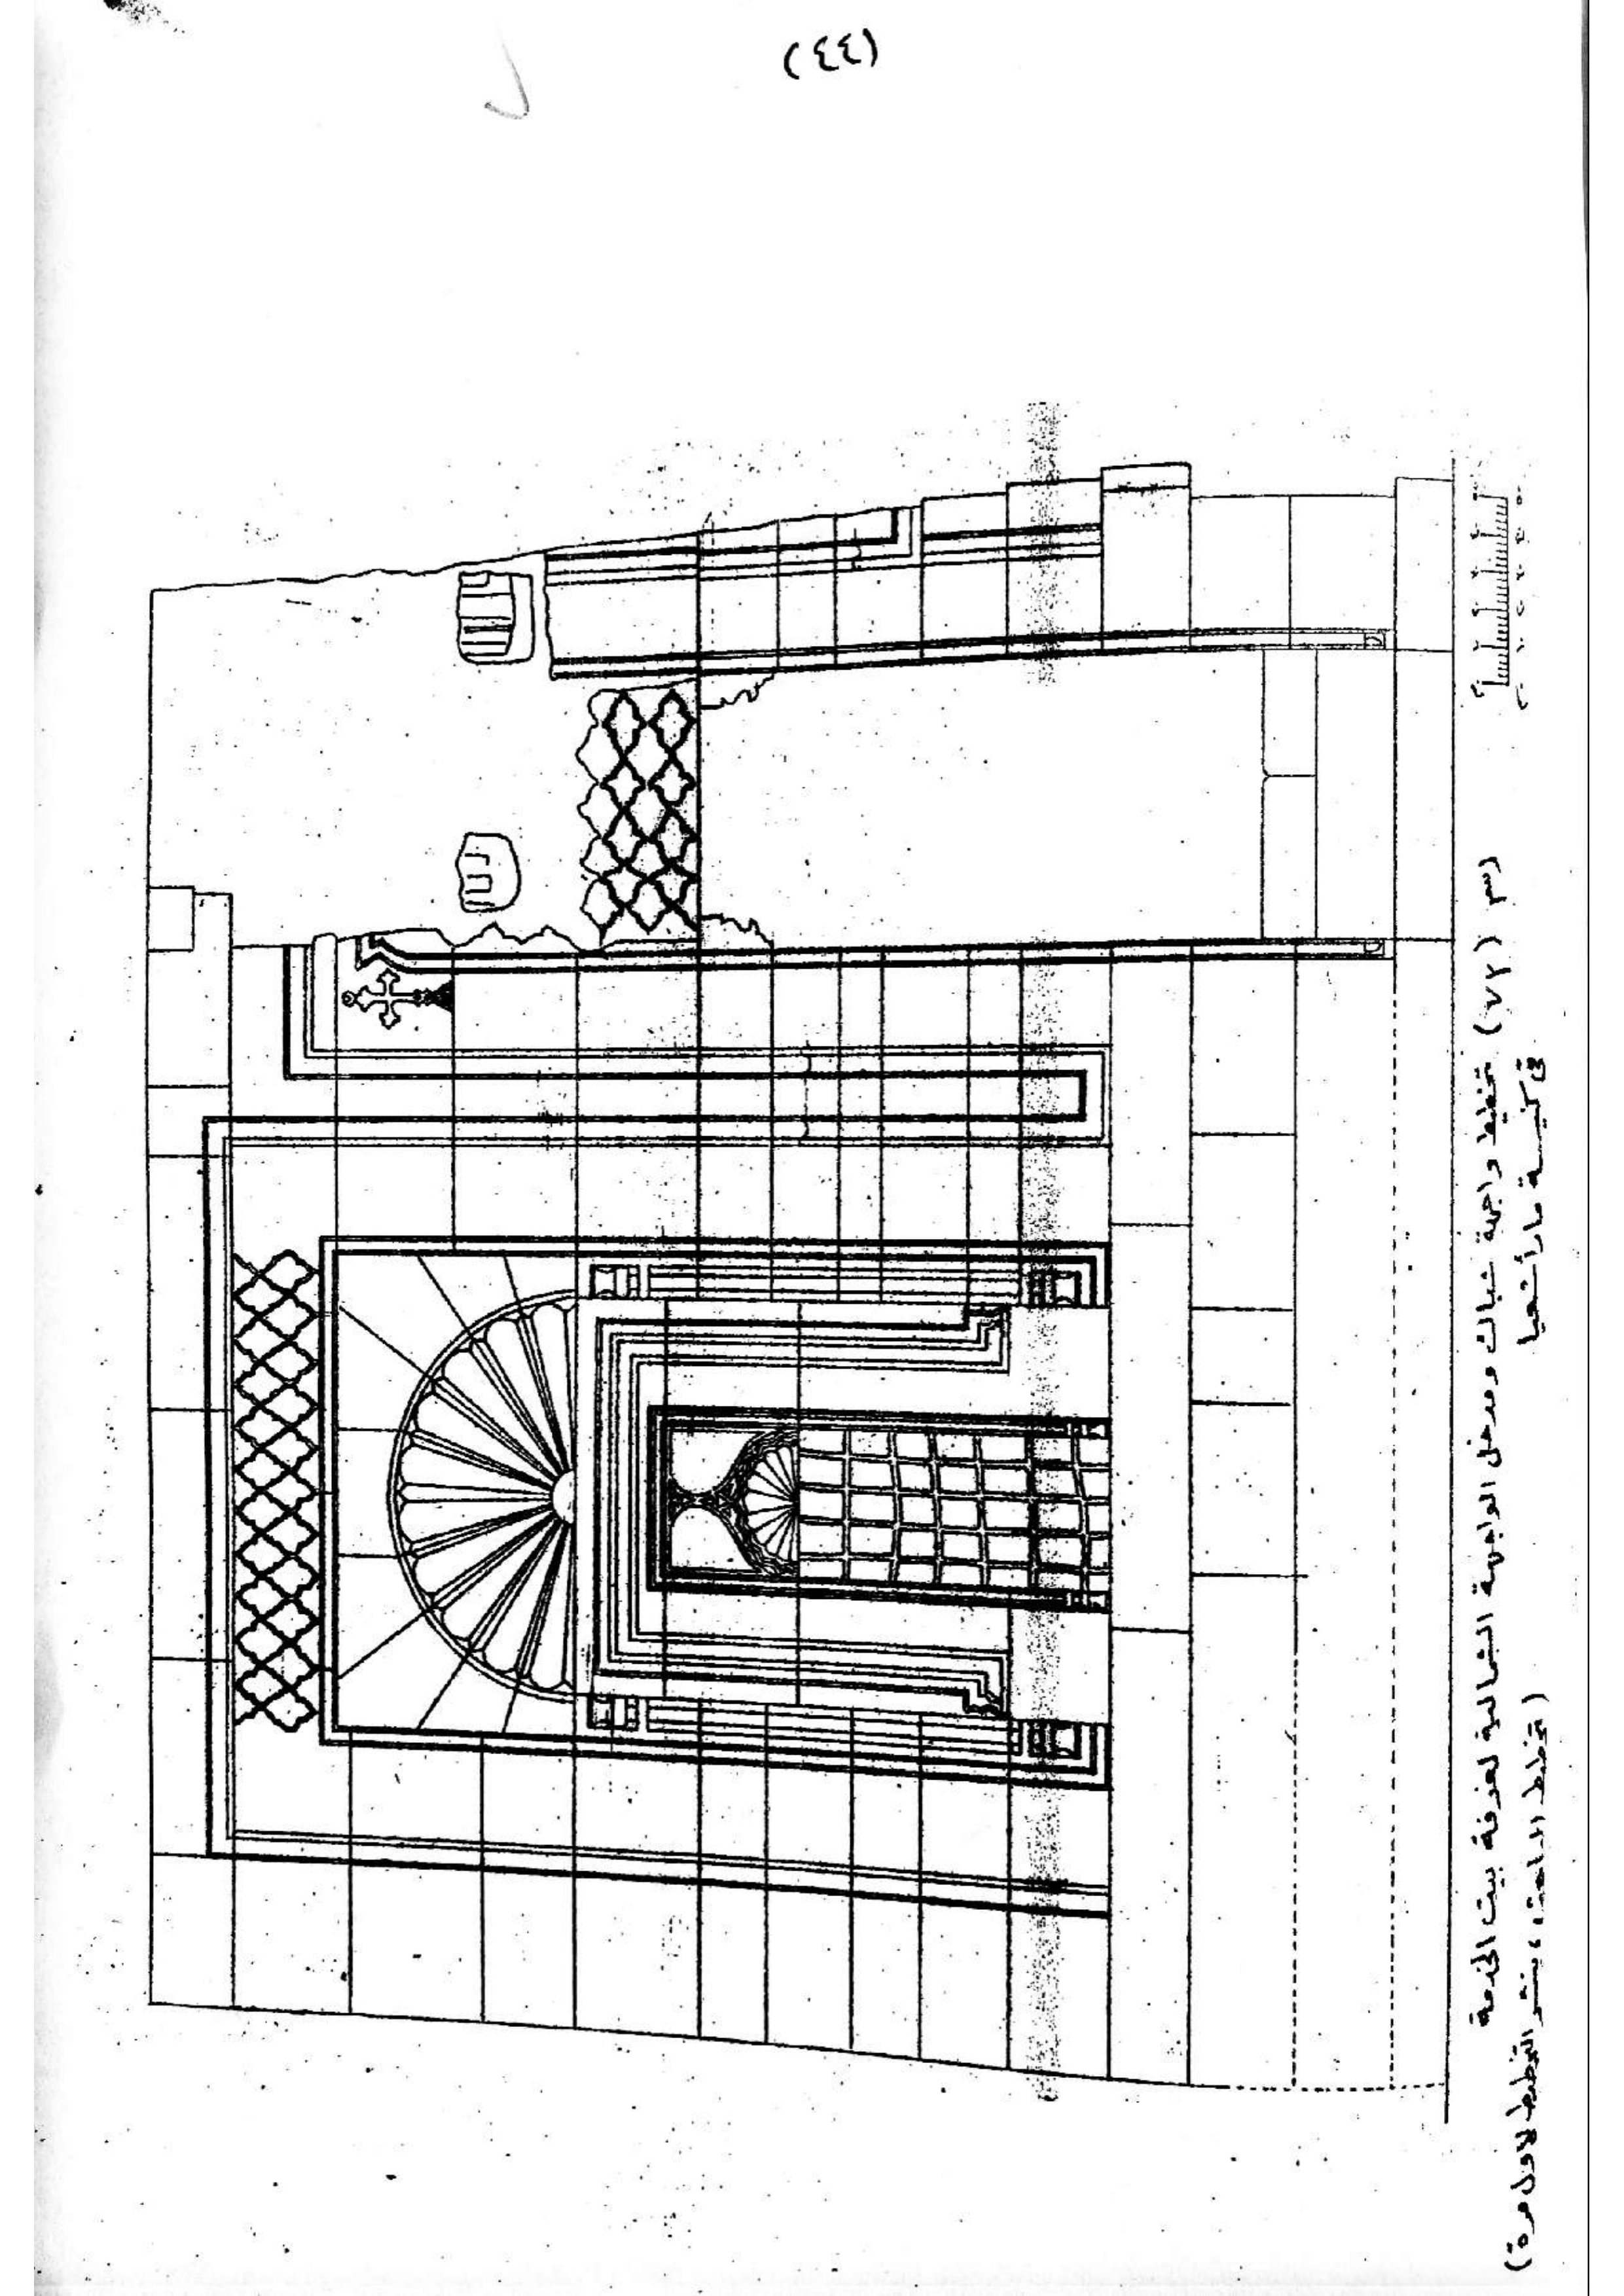 (٤٤)
رسم (٧٢) تخطيط واجهة شباك ومدخل الواجهة الشمالية لغرفة بيت الخدمة
في كنيسة مار أشعيا
(تخطيط الباحث، ينشر التخطيط لأول مرة)